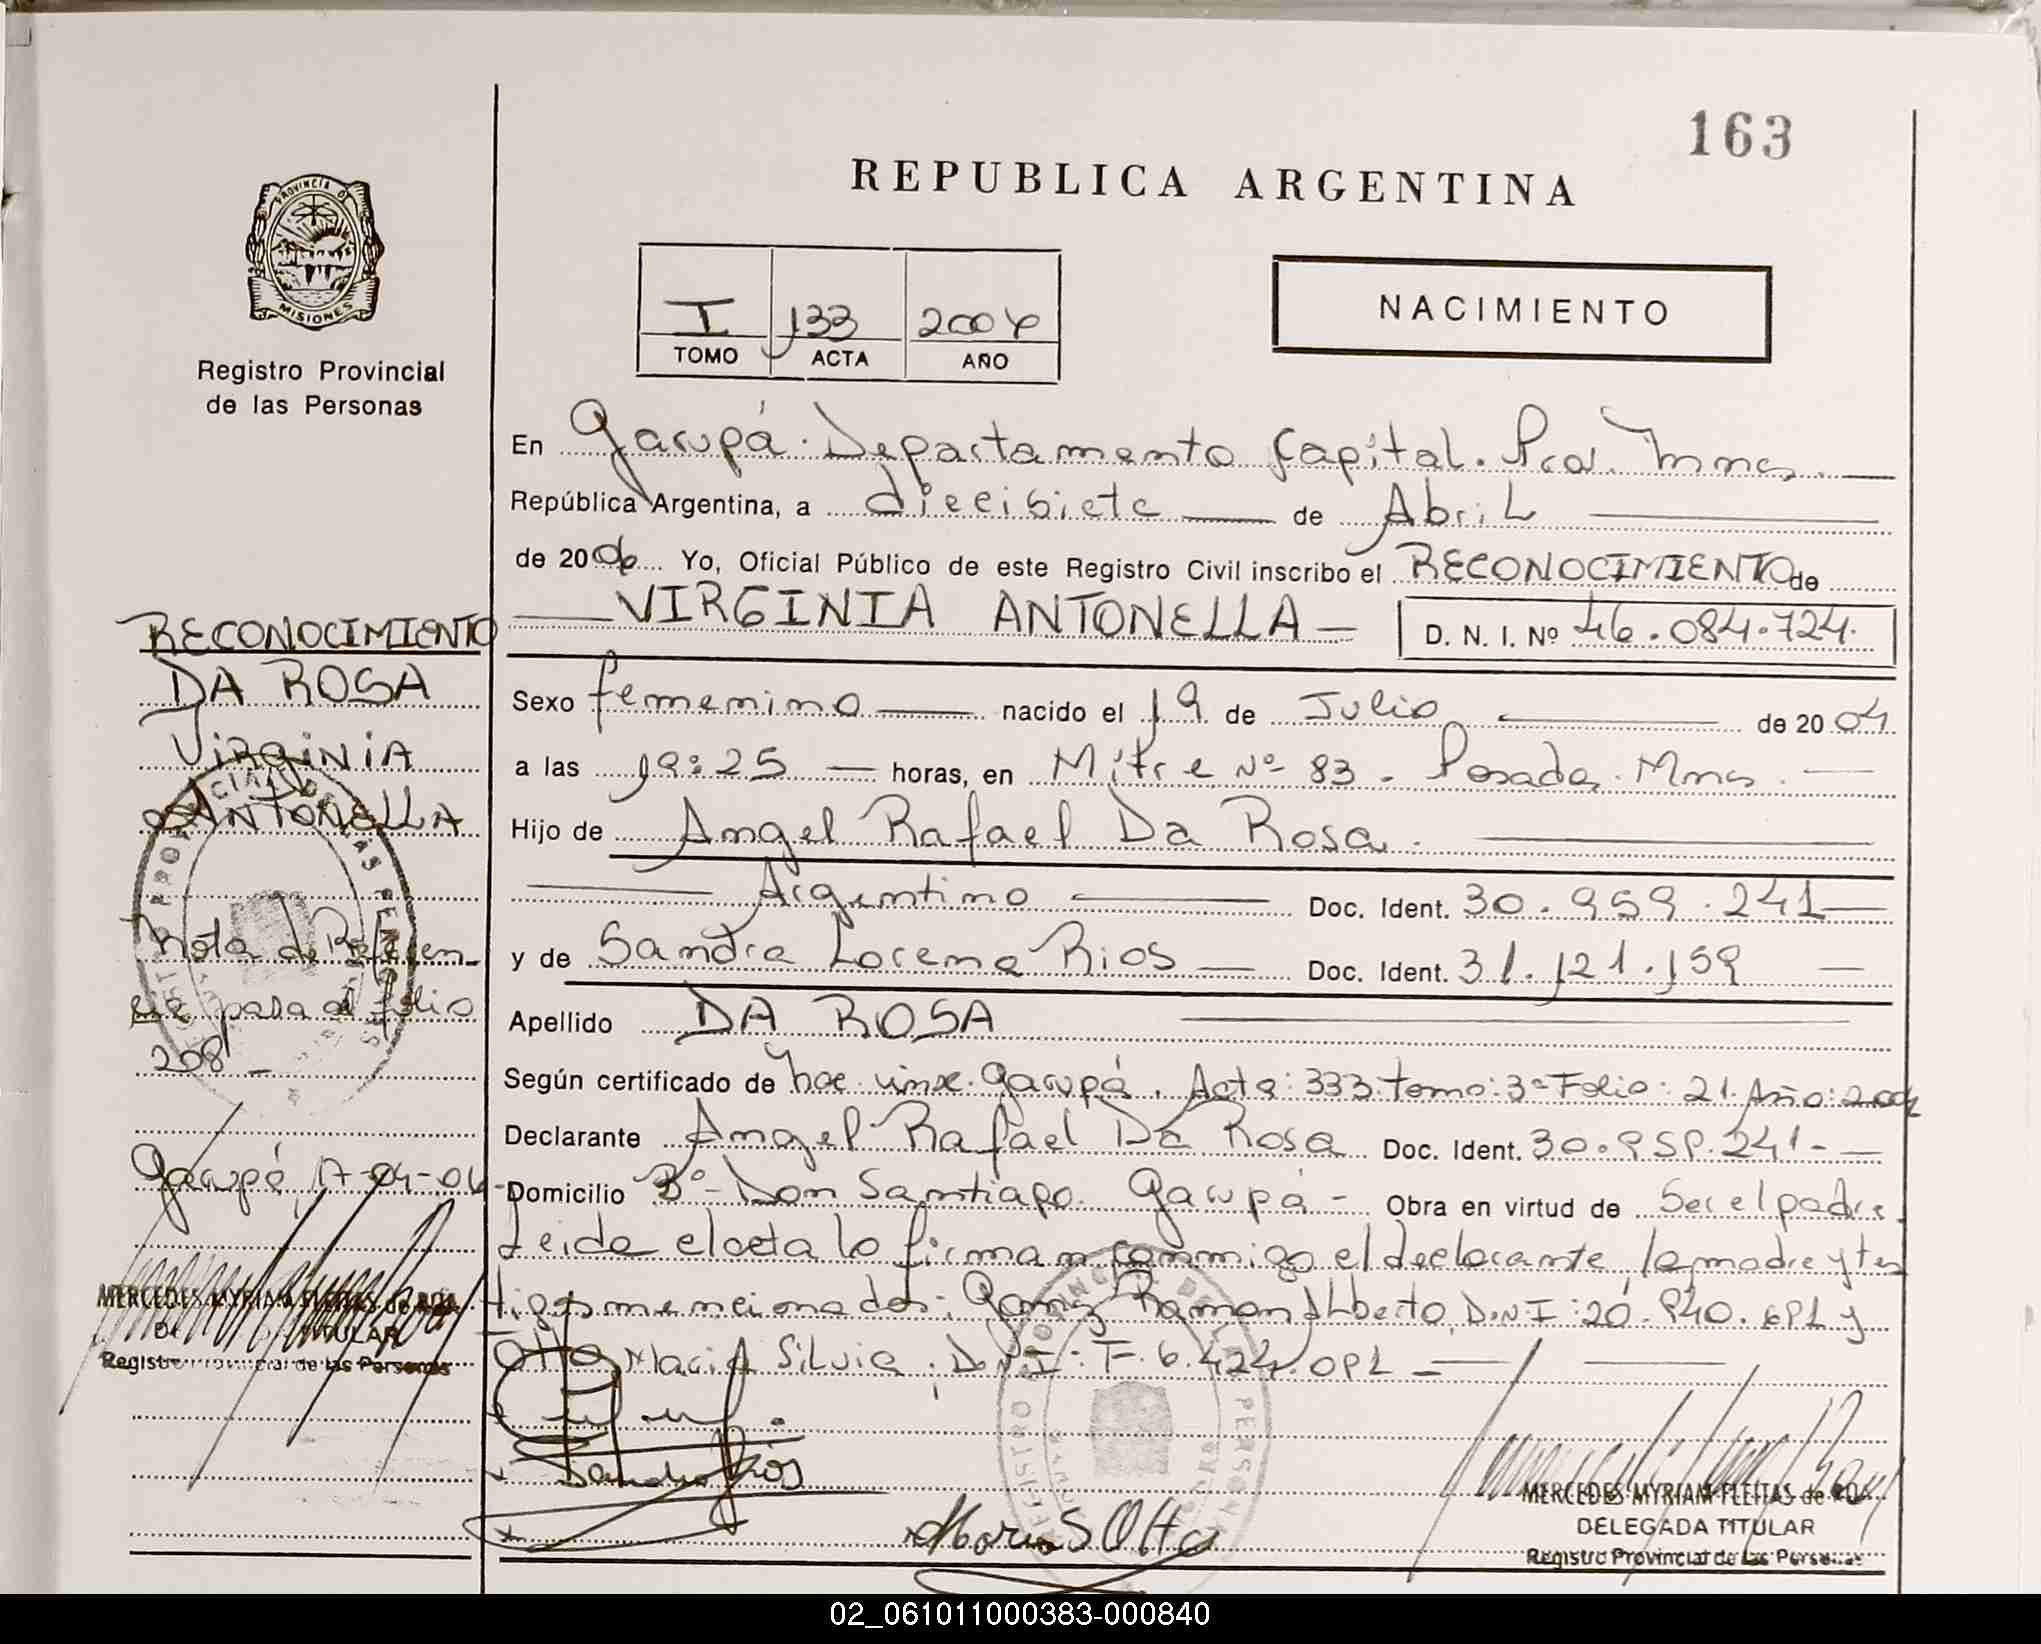 163
REPUBLICA ARGENTINA
PROVINCIA DE
MISIONES
Registro Provincial
de las Personas
I 133 2006
TOMO ACTA AÑO
NACIMIENTO
En Garupá. Departamento Capital. Pcia. Mnes.
República Argentina, a diecisiete de Abril
de 2006 Yo, Oficial Público de este Registro Civil inscribo el RECONOCIMIENTO de
VIRGINIA ANTONELLA D. N. I. Nº 46.084.724.
Sexo femenino nacido el 19 de Julio de 2004
a las 19:25 horas, en Mitre Nº 83. Posadas. Mnes.
Hijo de Angel Rafael Da Rosa.
Argentino Doc. Ident. 30.959.241
y de Sandra Lorena Rios Doc. Ident. 31.121.159
Apellido DA ROSA
Según certificado de Garupá. Acta: 333. tomo: 3º Folio: 21. Año: 2004
Declarante Angel Rafael Da Rosa Doc. Ident. 30.959.241.
Domicilio Bº Don Santiago. Garupá - Obra en virtud de Ser el padre.
Leida el acta lo firman conmigo el declarante, la madre y tes
tigos mencionados: Ramon Alberto, D.N.I: 20. y
Otto Maria Silvia, D.N.I: F. 6.424.091
Sandra Rios
Maria S Otto
MERCEDES MYRIAM FLEITAS de
DELEGADA TITULAR
Registro Provincial de las Personas
RECONOCIMIENTO
DA ROSA
VIRGINIA
ANTONELLA
Nota de Referen-
cia pasa al folio
208 -
Garupá, 17-04-06
MERCEDES MYRIAM FLEITAS de
TITULAR
Registro Provincial de las Personas
02_061011000383-000840